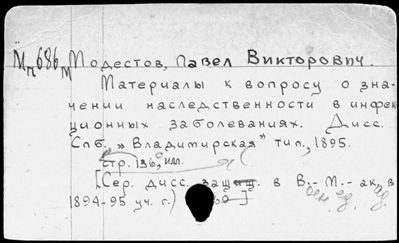 Мп686м Модестов, Павел Викторович.
Материалы к вопросу о зна-
чении наследственности в инфек-
ционных заболеваниях. Дисс.
Спб., „Владимирская" тип., 1895.
стр. 126, илл.
[Сер. дисс. защищ. в В.-М.-ак. в
1894-95 уч. г.)